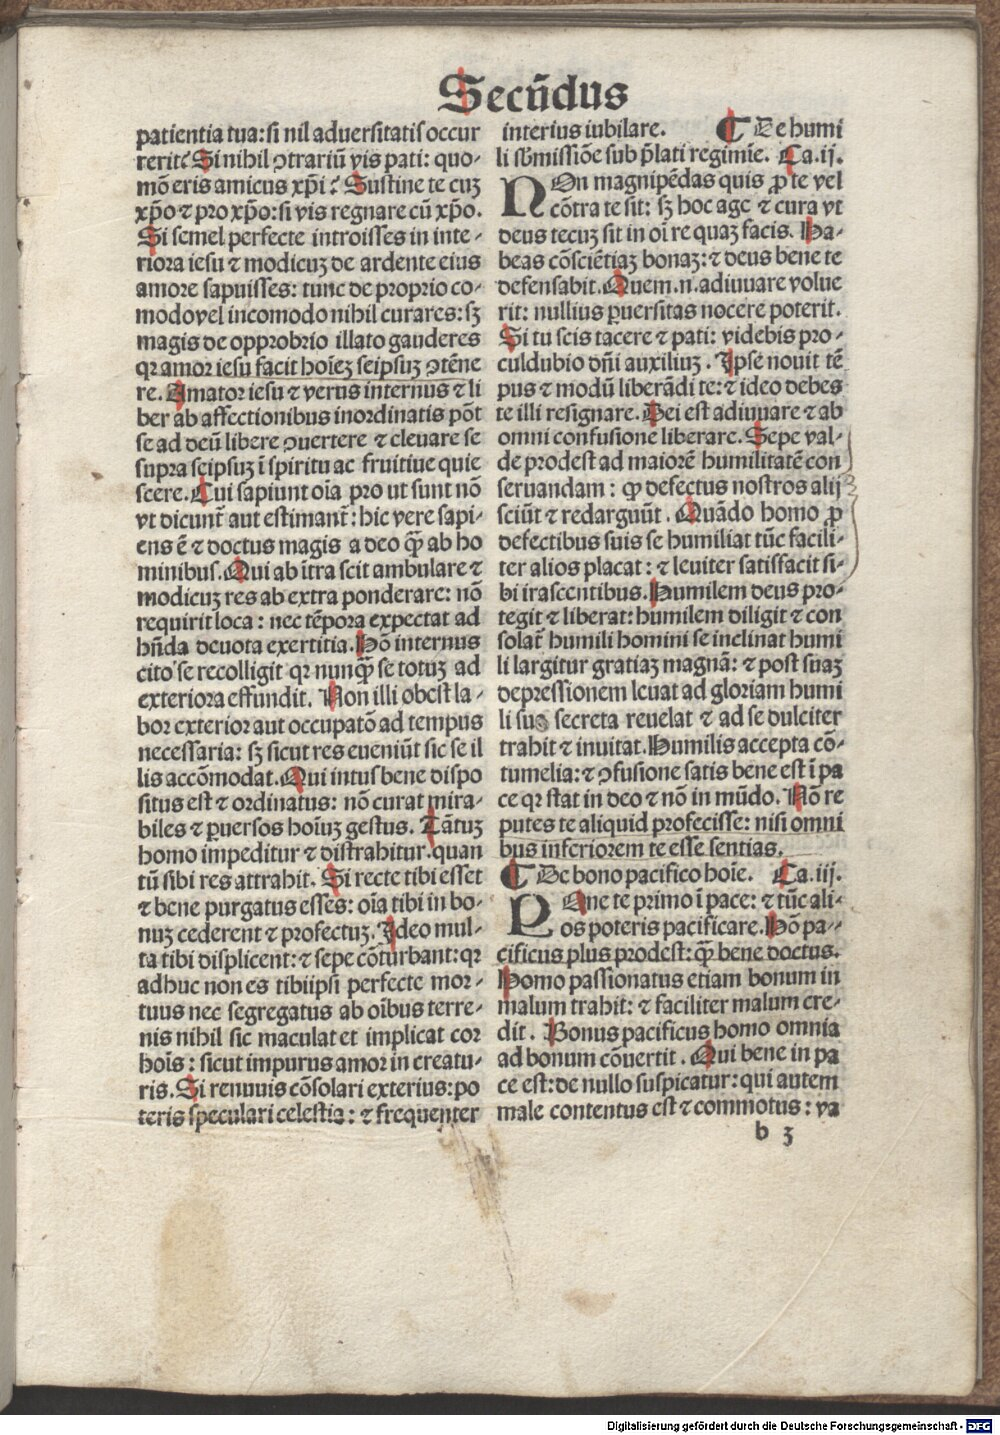 Secūdus
patientia tua: si nil aduersitatis occur
rerit? Si nihil ꝯtrariū vis pati: quo-
mō eris amicus xp̄i? Sustine te cuꝫ
xp̄o ⁊ pro xp̄o: si vis regnare cū xp̄o.
Si semel perfecte introisses in inte-
riora iesu ⁊ modicuꝫ de ardente eius
amore sapuisses: tunc de proprio co-
modo vel incomodo nihil curares: sꝫ
magis de opprobrio illato gauderes
qr amor iesu facit hoīeꝫ seipsuꝫ ꝯtēne
re. Amator iesu ⁊ verus internus ⁊ li
ber ab affectionibus inordinatis pōt
se ad deū libere ꝯuertere ⁊ eleuare se
supra seipsuꝫ ī spiritu ac fruitiue quie
scere. Cui sapiunt oīa pro ut sunt nō
vt dicunt̄ aut estimant̄: hic vere sapi-
ens ē ⁊ doctus magis a deo q̄ꝫ ab ho
minibus. Qui ab ītra scit ambulare ⁊
modicuꝫ res ab extra ponderare: nō
requirit loca: nec tēpora expectat ad
hn̄da deuota exertitia. Hō internus
cito se recolligit qr nunq̄ꝫ se totuꝫ ad
exteriora effundit. Non illi obest la-
bor exterior aut occupatō ad tempus
necessaria: sꝫ sicut res eueniūt sic se il
lis accōmodat. Qui intus bene dispo
situs est ⁊ ordinatus: nō curat mira-
biles ⁊ ꝑuersos hoīuꝫ gestus. Tātuꝫ
homo impeditur ⁊ distrahitur. quan
tū sibi res attrahit. Si recte tibi esset
⁊ bene purgatus esses: oīa tibi in bo-
nuꝫ cederent ⁊ profectuꝫ. Ideo mul-
ta tibi displicent: ⁊ sepe cōturbant: qr
adhuc non es tibiipsi perfecte mor-
tuus nec segregatus ab oībus terre-
nis nihil sic maculat et implicat cor
hoīs: sicut impurus amor in creatu-
ris. Si renuuis cōsolari exterius: po
teris speculari celestia: ⁊ frequenter
interius iubilare. ¶ De humi
li sb̄missiōe sub p̄lati regimīe. Ca.ij.
NOn magnipēdas quis ꝓ te vel
cōtra te sit: sꝫ hoc age ⁊ cura vt
deus tecuꝫ sit in oī re quaꝫ facis. Ha-
beas cōsciētiaꝫ bonaꝫ: ⁊ deus bene te
defensabit. Quem .n. adiuuare volue
rit: nullius ꝑuersitas nocere poterit.
Si tu scis tacere ⁊ pati: videbis pro-
culdubio dn̄i auxiliuꝫ. Ipse nouit tē
pus ⁊ modū liberādi te: ⁊ ideo debes
te illi resignare. Dei est adiuuare ⁊ ab
omni confusione liberare. Sepe val-
de prodest ad maiorē humilitatē con
seruandam: ꝙ defectus nostros alij
sciūt ⁊ redarguūt. Quādo homo ꝓ
defectibus suis se humiliat tūc facili-
ter alios placat: ⁊ leuiter satisfacit si-
bi irascentibus. Humilem deus pro-
tegit ⁊ liberat: humilem diligit ⁊ con
solat̄ humili homini se inclinat humi
li largitur gratiaꝫ magnā: ⁊ post suaꝫ
depressionem leuat ad gloriam humi
li sua secreta reuelat ⁊ ad se dulciter
trahit ⁊ inuitat. Humilis accepta cō-
tumelia: ⁊ ꝯfusione satis bene est ī pa
ce qr stat in deo ⁊ nō in mūdo. Nō re
putes te aliquid profecisse: nisi omni
bus inferiorem te esse sentias.
¶ De bono pacifico hoīe. Ca.iij.
POne te primo ī pace: ⁊ tūc ali-
os poteris pacificare. Hō pa-
cificus plus prodest: q̄ꝫ bene doctus.
Homo passionatus etiam bonum in
malum trahit: ⁊ faciliter malum cre-
dit. Bonus pacificus homo omnia
ad bonum cōuertit. Qui bene in pa
ce est: de nullo suspicatur: qui autem
male contentus est ⁊ commotus: va
b 3
Digitalisierung gefördert durch die Deutsche Forschungsgemeinschaft - DFG